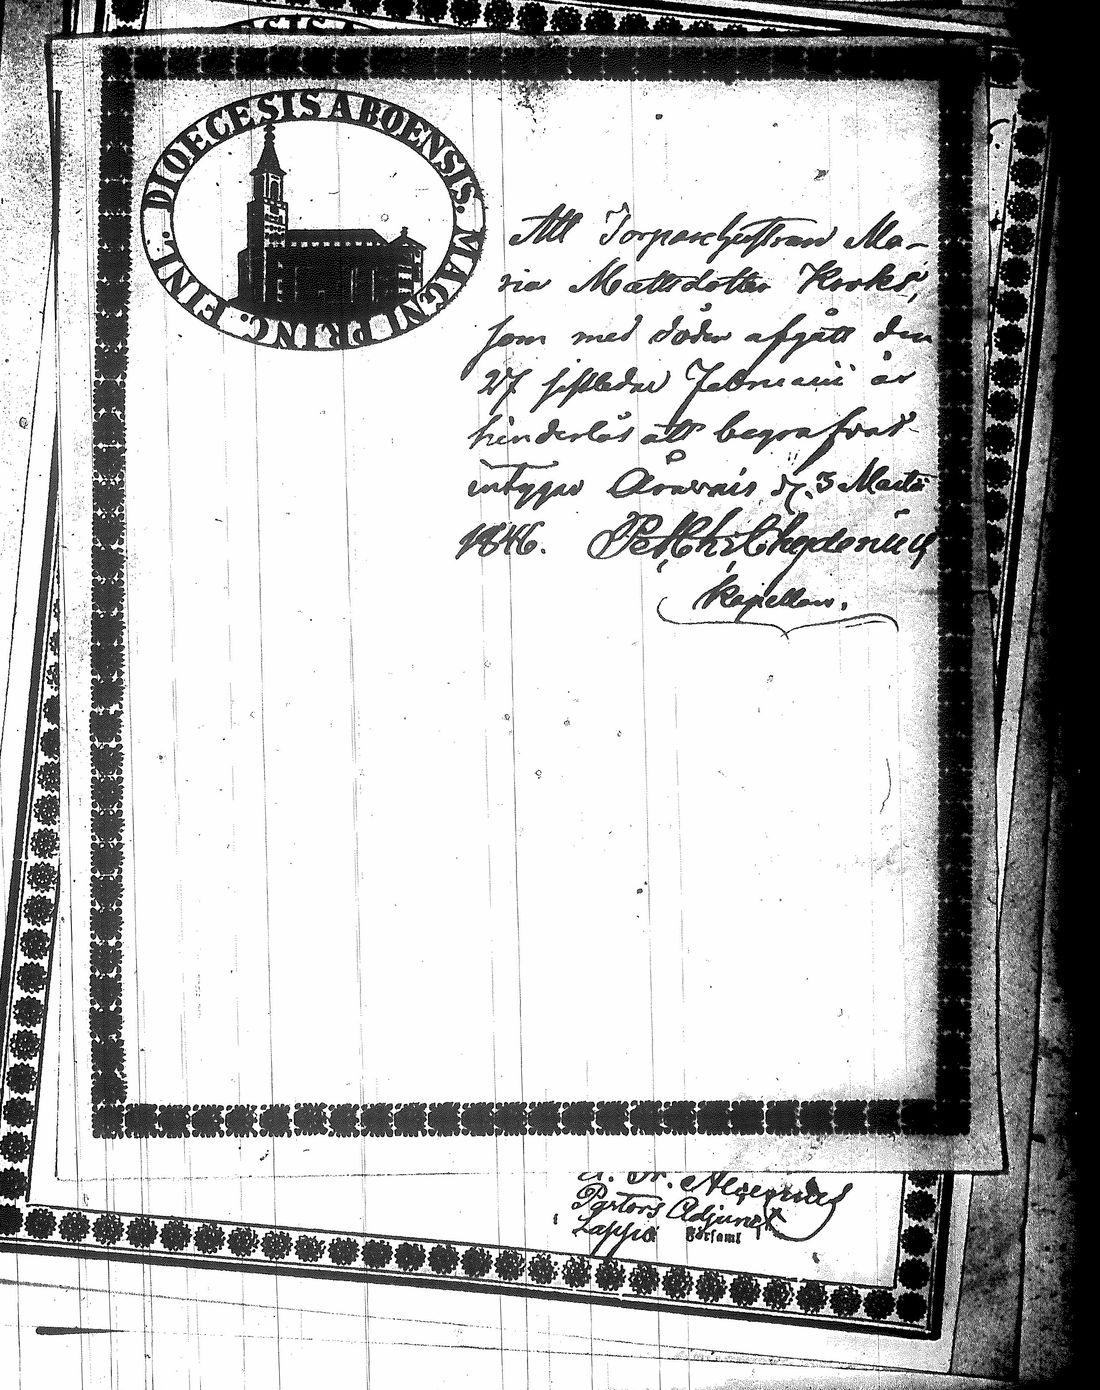 DIOECESIS ABOENSIS. MAGNI PRINC. FINL.
Att Torparehustrun Ma-
ria Mattsdotter Kroks,
som med döden afgått den
27 sistledne Februarii är
hinderlös att begrafvas
intygar Oravais d. 3 Martii
1846.
Kapellan.
Pastors Adjunct
Lappo